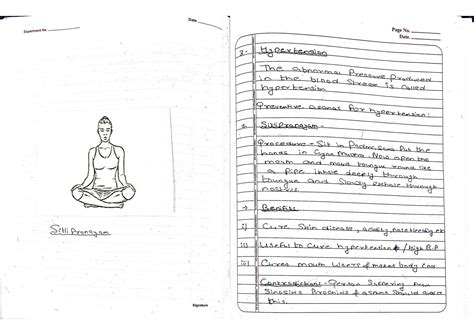 Experiment No.
Date
Sitli Pranayam
Signature
Page No.
Date.
3- Hypertension
The abnormal Pressure produced
in the blood Stress is called
hypertension
Preventive asanas for hypertension:
Sitlipranayam-
Procedure - Sit in Padmasana Put the
hands in Gyan Mudra. Now open the
mouth and make toungue round like
a pipe inhale deeply through
toungue and Slowly exhale through
nostrils.
Benefits
i) Cure Skin disease, acidity,
ii) Useful to Cure hypertension / High B.P
iii) Cures mouth Ulsers & makes body
Contradiction:- Person Suffering from
& should avoid
this.